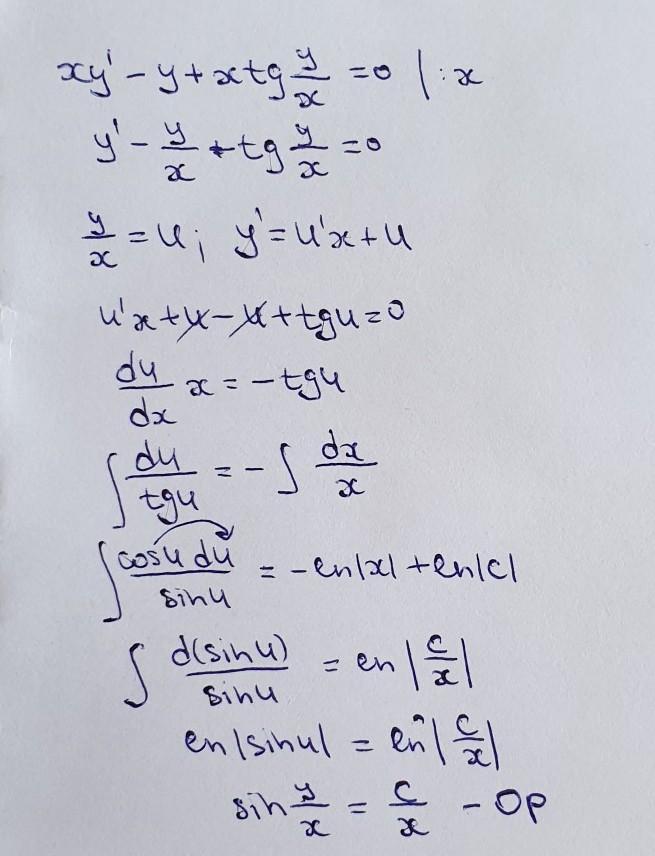 xy' - y + x tg y/x = 0 | : x
y' - y/x + tg y/x = 0
y/x = u; y' = u'x + u
u'x + u - u + tgu = 0
du/dx x = - tgu
∫ du/tgu = - ∫ dx/x
∫ cosu du/sinu = - ln|x| + ln|c|
∫ d(sinu)/sinu = ln |c/x|
ln|sinu| = ln |c/x|
sin y/x = c/x - Op